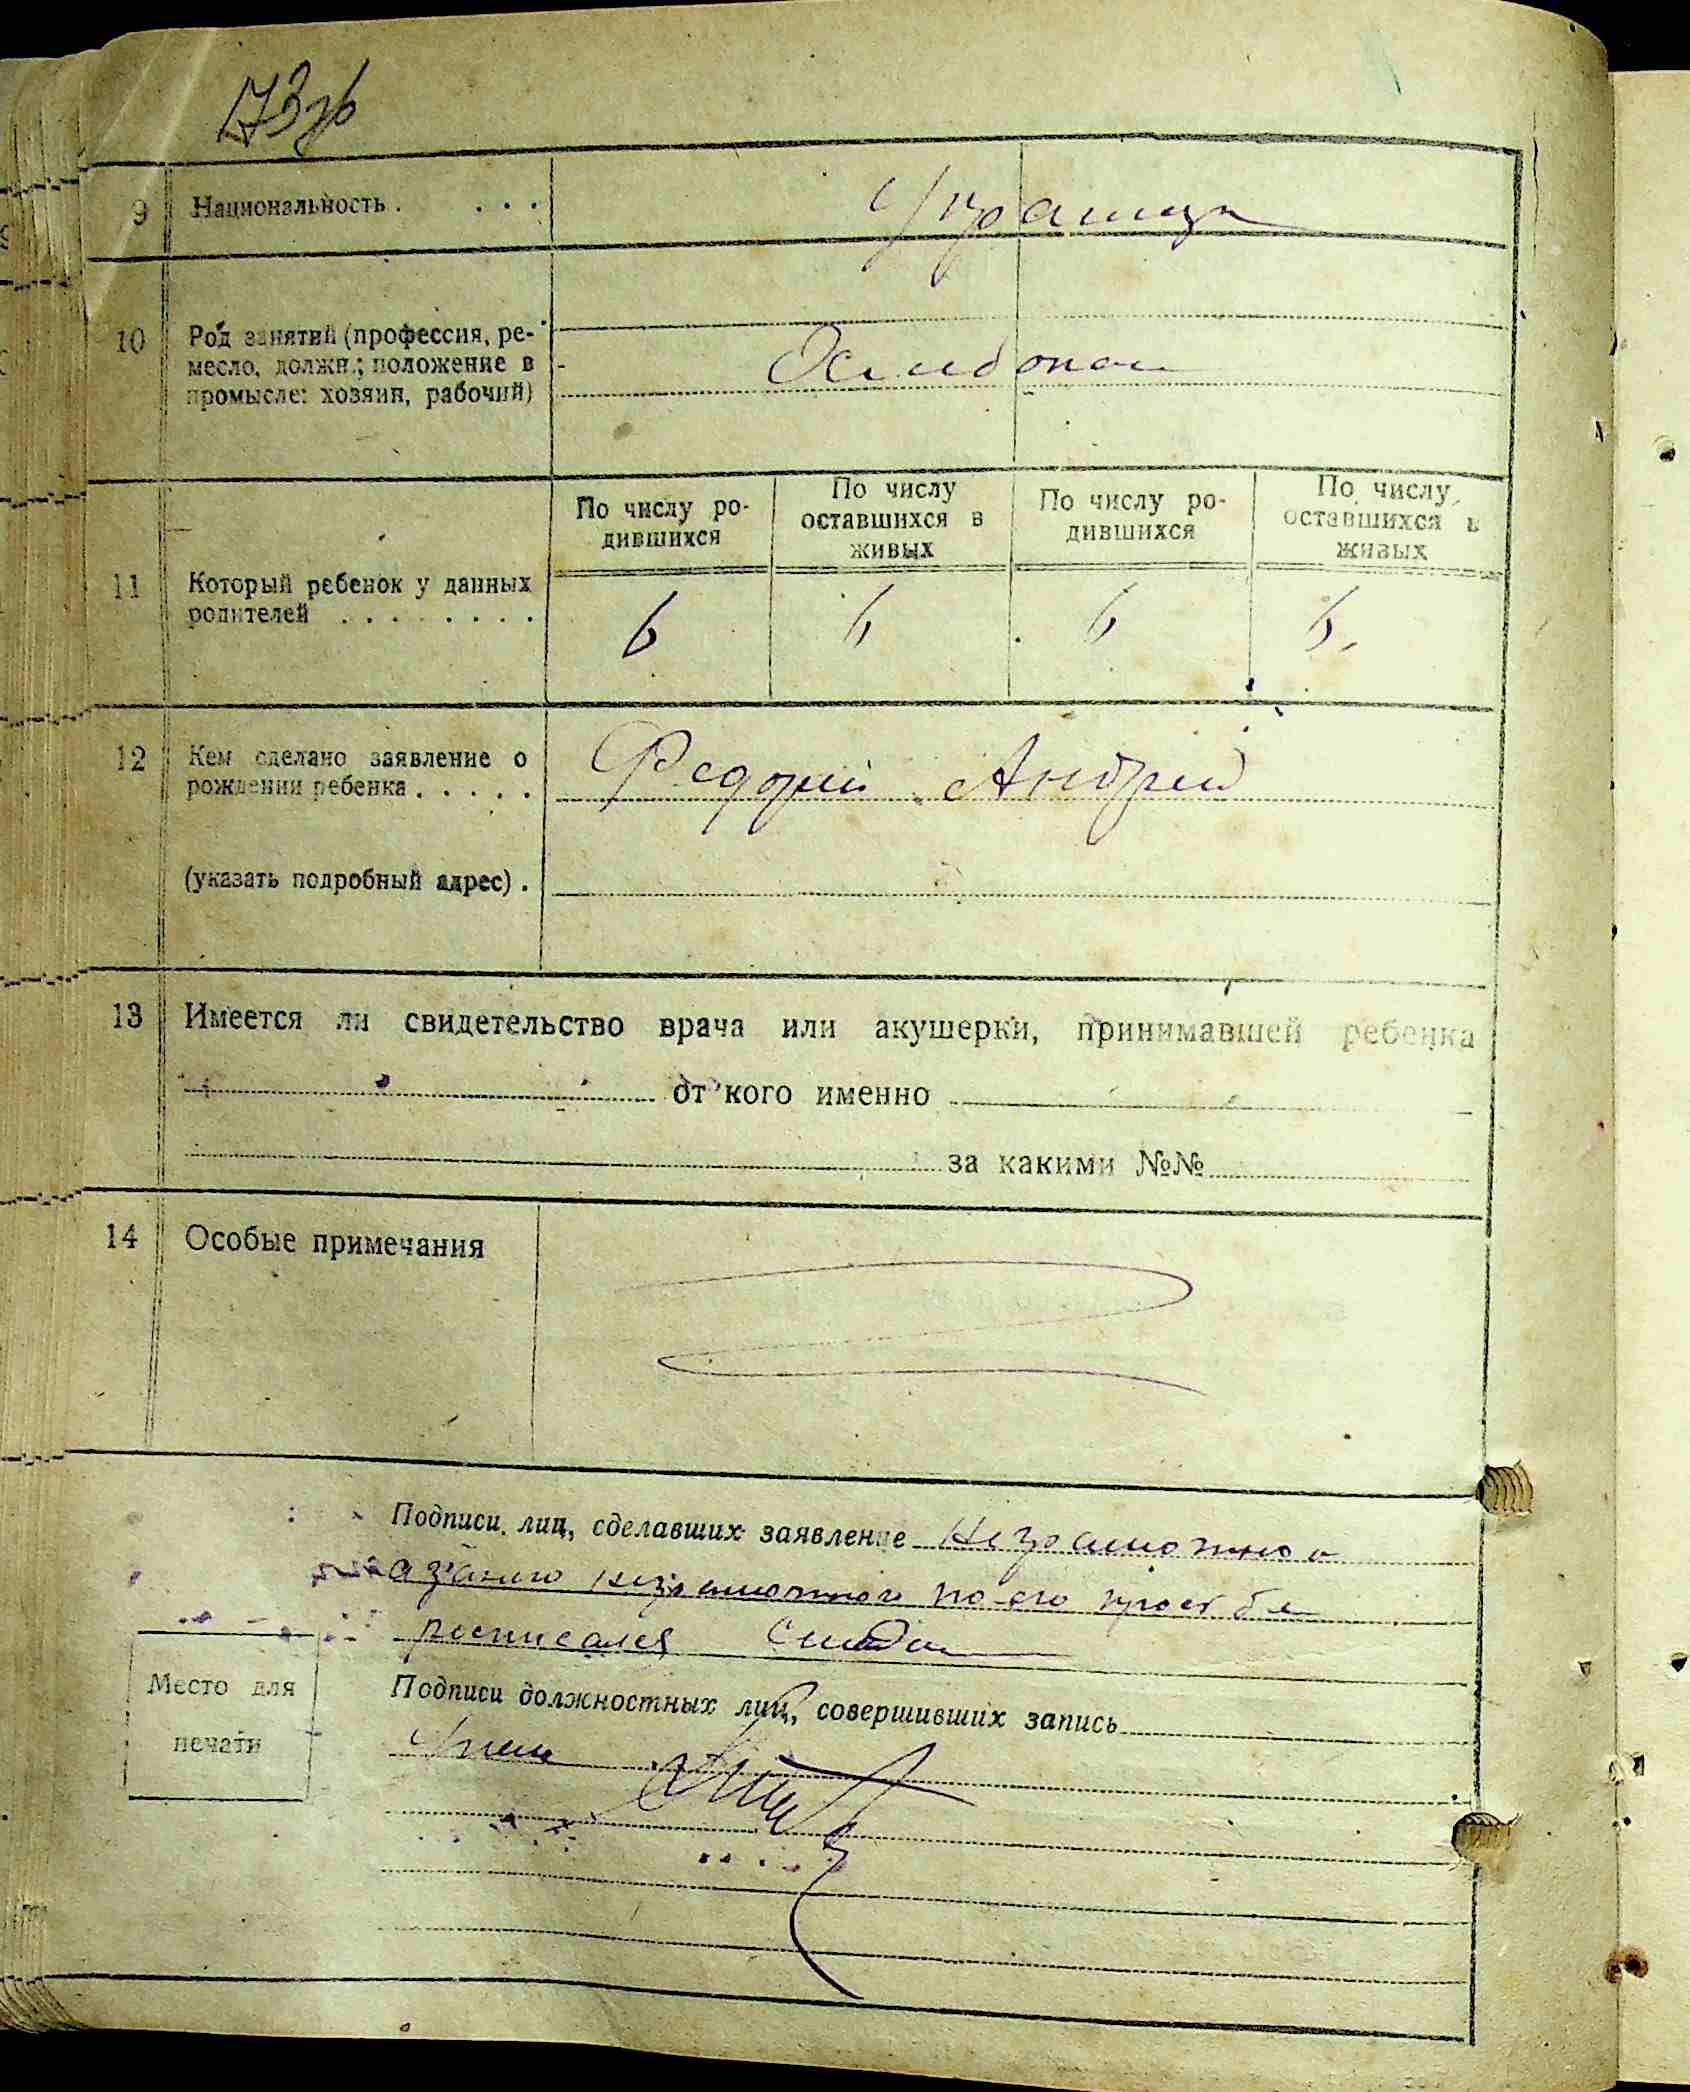 173зв
9 Национальность . . . . Украинцы
10 Род занятий (профессия, ре-
месло, должн.; положение в
промысле: хозяин, рабочий)
11 Который ребенок у данных
родителей . . . . . . . .
По числу ро-
дившихся
По числу
оставшихся в
живых
По числу ро-
дившихся
По числу
оставшихся в
живых
6 6 6 6.
12 Кем сделано заявление о
рождении ребенка . . . . . Андрей
(указать подробный адрес) .
13 Имеется ли свидетельство врача или акушерки, принимавшей ребенка
от кого именно
за какими №№
14 Особые примечания
Подписи лиц, сделавших заявление
неграмотного по его просьбе
росписался
Подписи должностных лиц, совершивших запись
Место для
печати